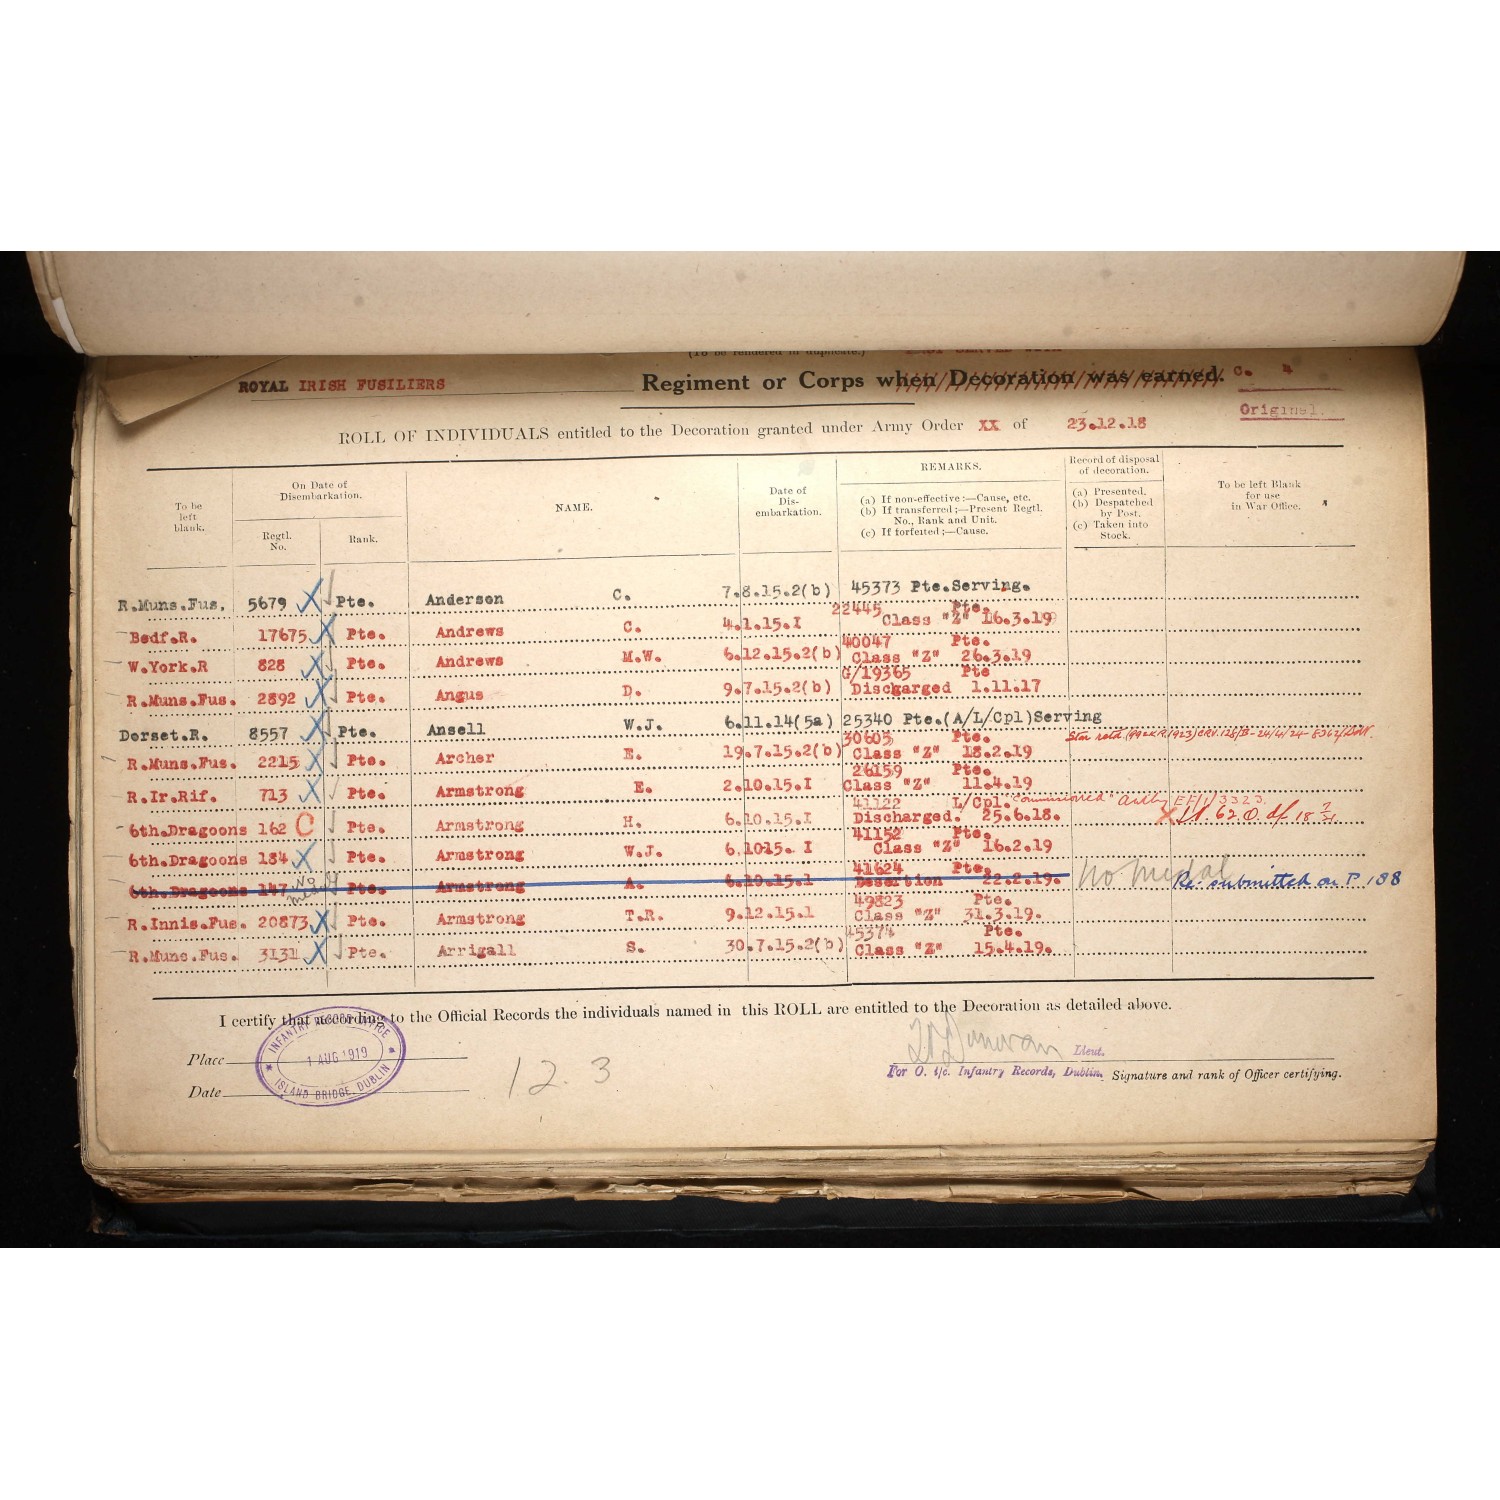 (To be rendered in duplicate.)
ROYAL IRISH FUSILIERS Regiment or Corps when Decoration was earned. C. 4
Original.
ROLL OF INDIVIDUALS entitled to the Decoration granted under Army Order XX of 23.12.18
To be left blank.
On Date of Disembarkation.
Regtl. No.
Rank.
NAME.
Date of Dis-embarkation.
REMARKS.
(a) If non-effective:—Cause, etc.
(b) If transferred;—Present Regtl. No., Rank and Unit.
(c) If forfeited;—Cause.
Record of disposal of decoration.
(a) Presented.
(b) Despatched by Post.
(c) Taken into Stock.
To be left Blank for use in War Office.
R.Muns.Fus. 5679 Pte. Anderson C. 7.8.15.2(b) 45373 Pte.Serving.
22445 Pte.
Bedf.R. 17675 Pte. Andrews C. 4.1.15.I Class "Z" 16.3.19
40047 Pte.
W.York.R 828 Pte. Andrews M.W. 6.12.15.2(b) Class "Z" 26.3.19
G/19365 Pte
R.Muns.Fus. 2892 Pte. Angus D. 9.7.15.2(b) Discharged 1.11.17
Dorset.R. 8557 Pte. Ansell W.J. 6.11.14(5a) 25340 Pte.(A/L/Cpl)Serving
30605 Pte. Star
R.Muns.Fus. 2215 Pte. Archer E. 19.7.15.2(b) Class "Z" 18.2.19
26159 Pte.
R.Ir.Rif. 713 Pte. Armstrong E. 2.10.15.I Class "Z" 11.4.19
41122 L/Cpl. "Commissioned" Auth EF/1/3323.
6th.Dragoons 162 O Pte. Armstrong H. 6.10.15.I Discharged. 25.6.18.
41152 Pte.
6th.Dragoons 184 Pte. Armstrong W.J. 6.1015. I Class "Z" 16.2.19
41624 Pte.
6th.Dragoons 147 No medal Pte. Armstrong A. 6.10.15.1 Desertion 22.2.19. No medal Re-submitted on P. 188
49823 Pte.
R.Innis.Fus. 20873 Pte. Armstrong T.R. 9.12.15.1 Class "Z" 31.3.19.
45374 Pte.
R.Muns.Fus. 3131 Pte. Arrigall S. 30.7.15.2(b) Class "Z" 15.4.19.
I certify that according to the Official Records the individuals named in this ROLL are entitled to the Decoration as detailed above.
INFANTRY RECORD OFFICE
1 AUG 1919
ISLAND BRIDGE, DUBLIN
Place
Date
12.3
Lieut.
For O. i/c. Infantry Records, Dublin. Signature and rank of Officer certifying.